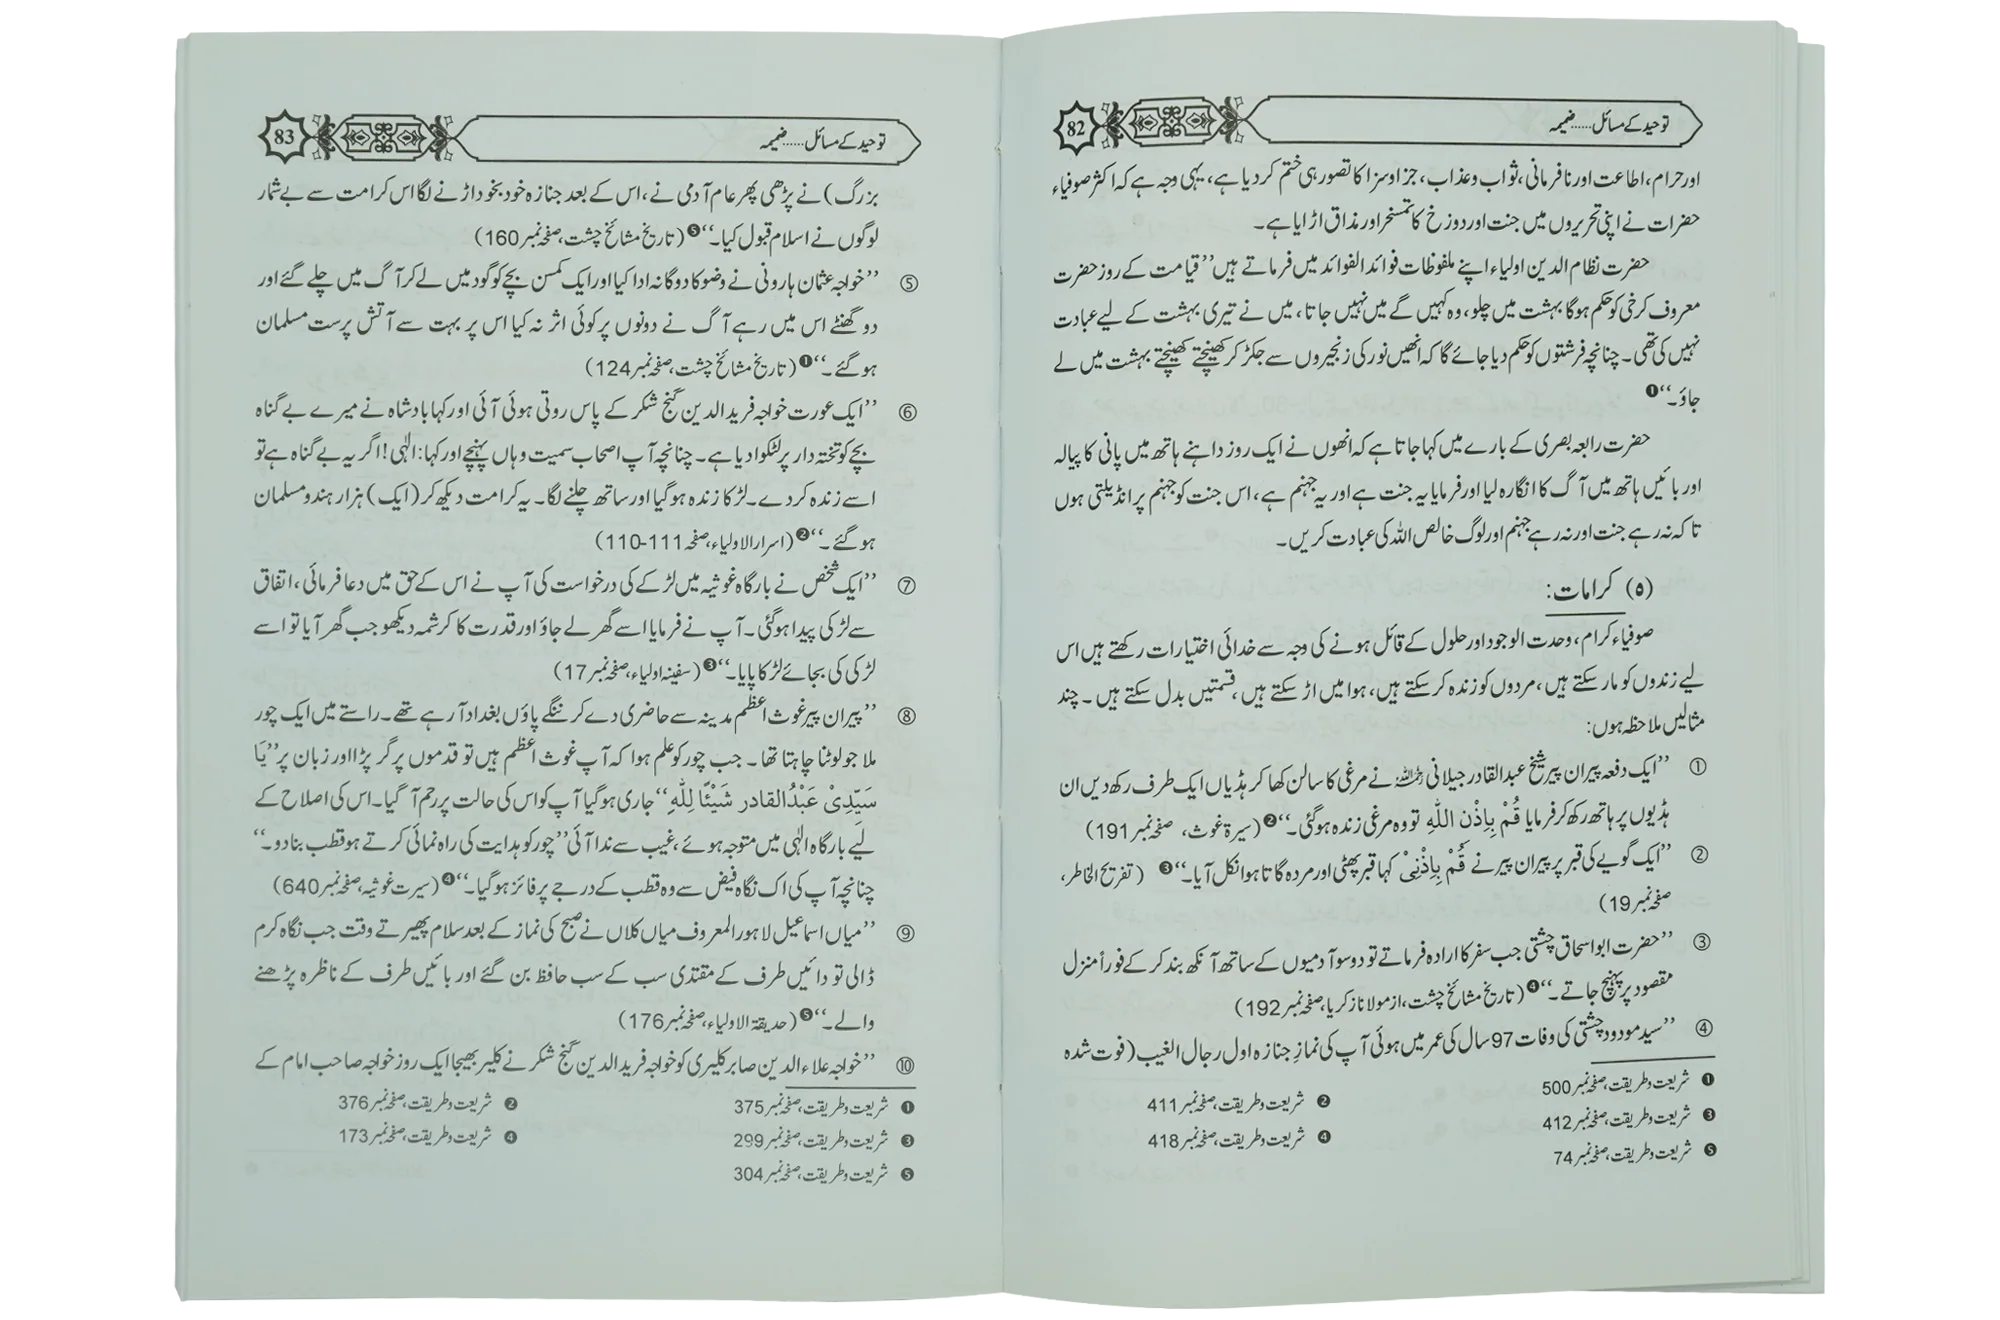 توحید کے مسائل......ضمیمہ
82
اور حرام، اطاعت اور نافرمانی، ثواب و عذاب، جزا و سزا کا تصور ہی ختم کر دیا ہے، یہی وجہ ہے کہ اکثر صوفیاء
حضرات نے اپنی تحریروں میں جنت اور دوزخ کا تمسخر اور مذاق اڑایا ہے۔
حضرت نظام الدین اولیاء اپنے ملفوظات فوائد الفوائد میں فرماتے ہیں ’’قیامت کے روز حضرت
معروف کرخی کو حکم ہوگا بہشت میں چلو، وہ کہیں گے میں نہیں جاتا، میں نے تیری بہشت کے لیے عبادت
نہیں کی تھی۔ چنانچہ فرشتوں کو حکم دیا جائے گا کہ انھیں نور کی زنجیروں سے جکڑ کر کھینچتے کھینچتے بہشت میں لے
جاؤ۔‘‘❶
حضرت رابعہ بصری کے بارے میں کہا جاتا ہے کہ انھوں نے ایک روز داہنے ہاتھ میں پانی کا پیالہ
اور بائیں ہاتھ میں آگ کا انگارہ لیا اور فرمایا یہ جنت ہے اور یہ جہنم ہے، اس جنت کو جہنم پر انڈیلتی ہوں
تاکہ نہ رہے جنت اور نہ رہے جہنم اور لوگ خالص اللہ کی عبادت کریں۔
(۵) کرامات:
صوفیاء کرام، وحدت الوجود اور حلول کے قائل ہونے کی وجہ سے خدائی اختیارات رکھتے ہیں اس
لیے زندوں کو مار سکتے ہیں، مردوں کو زندہ کر سکتے ہیں، ہوا میں اڑ سکتے ہیں، قسمتیں بدل سکتے ہیں۔ چند
مثالیں ملاحظہ ہوں:
① ’’ایک دفعہ پیران پیر شیخ عبدالقادر جیلانی رحمہ اللہ نے مرغی کا سالن کھا کر ہڈیاں ایک طرف رکھ دیں ان
ہڈیوں پر ہاتھ رکھ کر فرمایا قُمْ بِاِذْنِ اللّٰهِ تو وہ مرغی زندہ ہوگئی۔‘‘❷ (سیرۃ غوث، صفحہ نمبر 191)
② ’’ایک گویے کی قبر پر پیران پیر نے قُمْ بِاِذْنِیْ کہا قبر پھٹی اور مردہ گاتا ہوا نکل آیا۔‘‘❸ (تفریح الخاطر،
صفحہ نمبر 19)
③ ’’حضرت ابو اسحاق چشتی جب سفر کا ارادہ فرماتے تو دو سو آدمیوں کے ساتھ آنکھ بند کر کے فوراً منزل
مقصود پر پہنچ جاتے۔‘‘❹ (تاریخ مشائخ چشت، از مولانا زکریا، صفحہ نمبر 192)
④ ’’سید مودود چشتی کی وفات 97 سال کی عمر میں ہوئی آپ کی نماز جنازہ اول رجال الغیب (فوت شدہ
❶ شریعت و طریقت، صفحہ نمبر 500
❷ شریعت و طریقت، صفحہ نمبر 411
❸ شریعت و طریقت، صفحہ نمبر 412
❹ شریعت و طریقت، صفحہ نمبر 418
❺ شریعت و طریقت، صفحہ نمبر 74
توحید کے مسائل......ضمیمہ
83
بزرگ) نے پڑھی پھر عام آدمی نے، اس کے بعد جنازہ خود بخود اڑنے لگا اس کرامت سے بے شمار
لوگوں نے اسلام قبول کیا۔‘‘❺ (تاریخ مشائخ چشت، صفحہ نمبر 160)
⑤ ’’خواجہ عثمان ہارونی نے وضو کا دوگانہ ادا کیا اور ایک کمسن بچے کو گود میں لے کر آگ میں چلے گئے اور
دو گھنٹے اس میں رہے آگ نے دونوں پر کوئی اثر نہ کیا اس پر بہت سے آتش پرست مسلمان
ہوگئے۔‘‘❶ (تاریخ مشائخ چشت، صفحہ نمبر 124)
⑥ ’’ایک عورت خواجہ فرید الدین گنج شکر کے پاس روتی ہوئی آئی اور کہا بادشاہ نے میرے بے گناہ
بچے کو تختہ دار پر لٹکوا دیا ہے۔ چنانچہ آپ اصحاب سمیت وہاں پہنچے اور کہا: الٰہی! اگر یہ بے گناہ ہے تو
اسے زندہ کر دے۔ لڑکا زندہ ہوگیا اور ساتھ چلنے لگا۔ یہ کرامت دیکھ کر (ایک) ہزار ہندو مسلمان
ہوگئے۔‘‘❷ (اسرار الاولیاء، صفحہ 111-110)
⑦ ’’ایک شخص نے بارگاہ غوثیہ میں لڑکے کی درخواست کی آپ نے اس کے حق میں دعا فرمائی، اتفاق
سے لڑکی پیدا ہوگئی۔ آپ نے فرمایا اسے گھر لے جاؤ اور قدرت کا کرشمہ دیکھو جب گھر آیا تو اسے
لڑکی کی بجائے لڑکا پایا۔‘‘❸ (سفینہ اولیاء، صفحہ نمبر 17)
⑧ ’’پیران پیر غوث اعظم مدینہ سے حاضری دے کر ننگے پاؤں بغداد آرہے تھے۔ راستے میں ایک چور
ملا جو لوٹنا چاہتا تھا۔ جب چور کو علم ہوا کہ آپ غوث اعظم ہیں تو قدموں پر گر پڑا اور زبان پر ’’یَا
سَیِّدِیْ عَبْدُ القادر شَیْئًا لِلّٰهِ‘‘ جاری ہوگیا آپ کو اس کی حالت پر رحم آگیا۔ اس کی اصلاح کے
لیے بارگاہ الٰہی میں متوجہ ہوئے، غیب سے ندا آئی ’’چور کو ہدایت کی راہ نمائی کرتے ہو قطب بنا دو۔‘‘
چنانچہ آپ کی اک نگاہ فیض سے وہ قطب کے درجے پر فائز ہوگیا۔‘‘❹ (سیرت غوثیہ، صفحہ نمبر 640)
⑨ ’’میاں اسماعیل لاہور المعروف میاں کلاں نے صبح کی نماز کے بعد سلام پھیرتے وقت جب نگاہ کرم
ڈالی تو دائیں طرف کے مقتدی سب کے سب حافظ بن گئے اور بائیں طرف کے ناظرہ پڑھنے
والے۔‘‘❺ (حدیقۃ الاولیاء، صفحہ نمبر 176)
⑩ ’’خواجہ علاء الدین صابر کلیری کو خواجہ فرید الدین گنج شکر نے کلیر بھیجا ایک روز خواجہ صاحب امام کے
❶ شریعت و طریقت، صفحہ نمبر 375
❷ شریعت و طریقت، صفحہ نمبر 376
❸ شریعت و طریقت، صفحہ نمبر 299
❹ شریعت و طریقت، صفحہ نمبر 173
❺ شریعت و طریقت، صفحہ نمبر 304